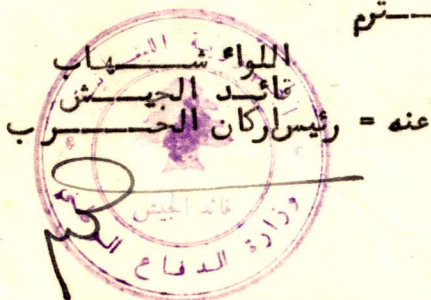 ـترم
اللواء شـــهاب
قائـد الجيـــش
عنه = رئيس اركان الحـــرب
قائد الجيش
وزارة الدفاع